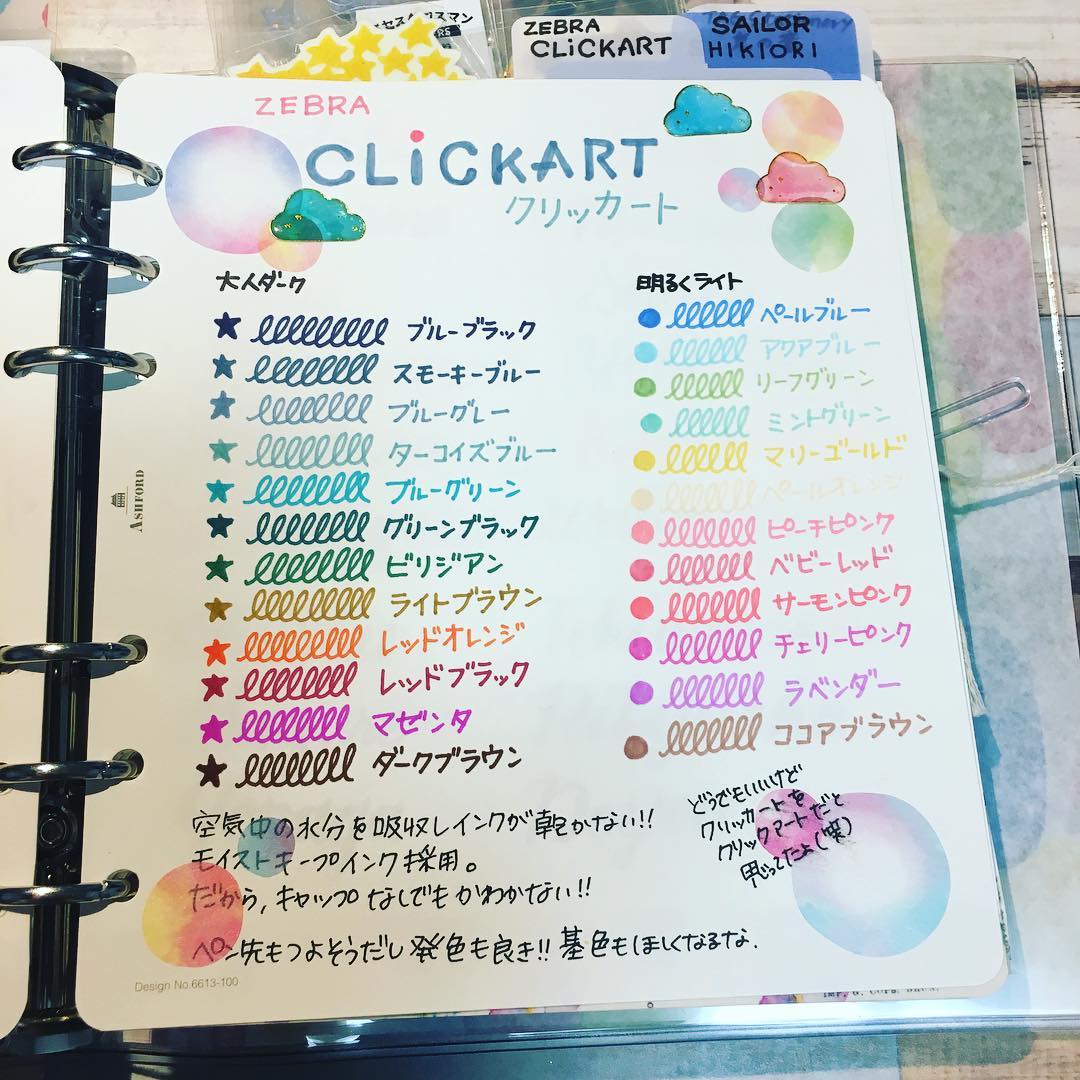 ZEBRA
CLiCKART
SAILOR
HIKIORI
ZEBRA
CLiCKART
クリッカート
大人ダーク
ブルーブラック
スモーキーブルー
ブルーグレー
ターコイズブルー
ブルーグリーン
グリーンブラック
ビリジアン
ライトブラウン
レッドオレンジ
レッドブラック
マゼンタ
ダークブラウン
明るくライト
ペールブルー
アクアブルー
リーフグリーン
ミントグリーン
マリーゴールド
ペールオレンジ
ピーチピンク
ベビーレッド
サーモンピンク
チェリーピンク
ラベンダー
ココアブラウン
空気中の水分を吸収しインクが乾かない!!
モイストキープインク採用。
だから,キャップなしでもかわかない!!
ペン先もつよそうだし発色も良き!!基色もほしくなるな.
どうでもいいけど
クリッカートを
クリックアートだと
思ってたよ(笑)
ASHFORD
Design No.6613-100